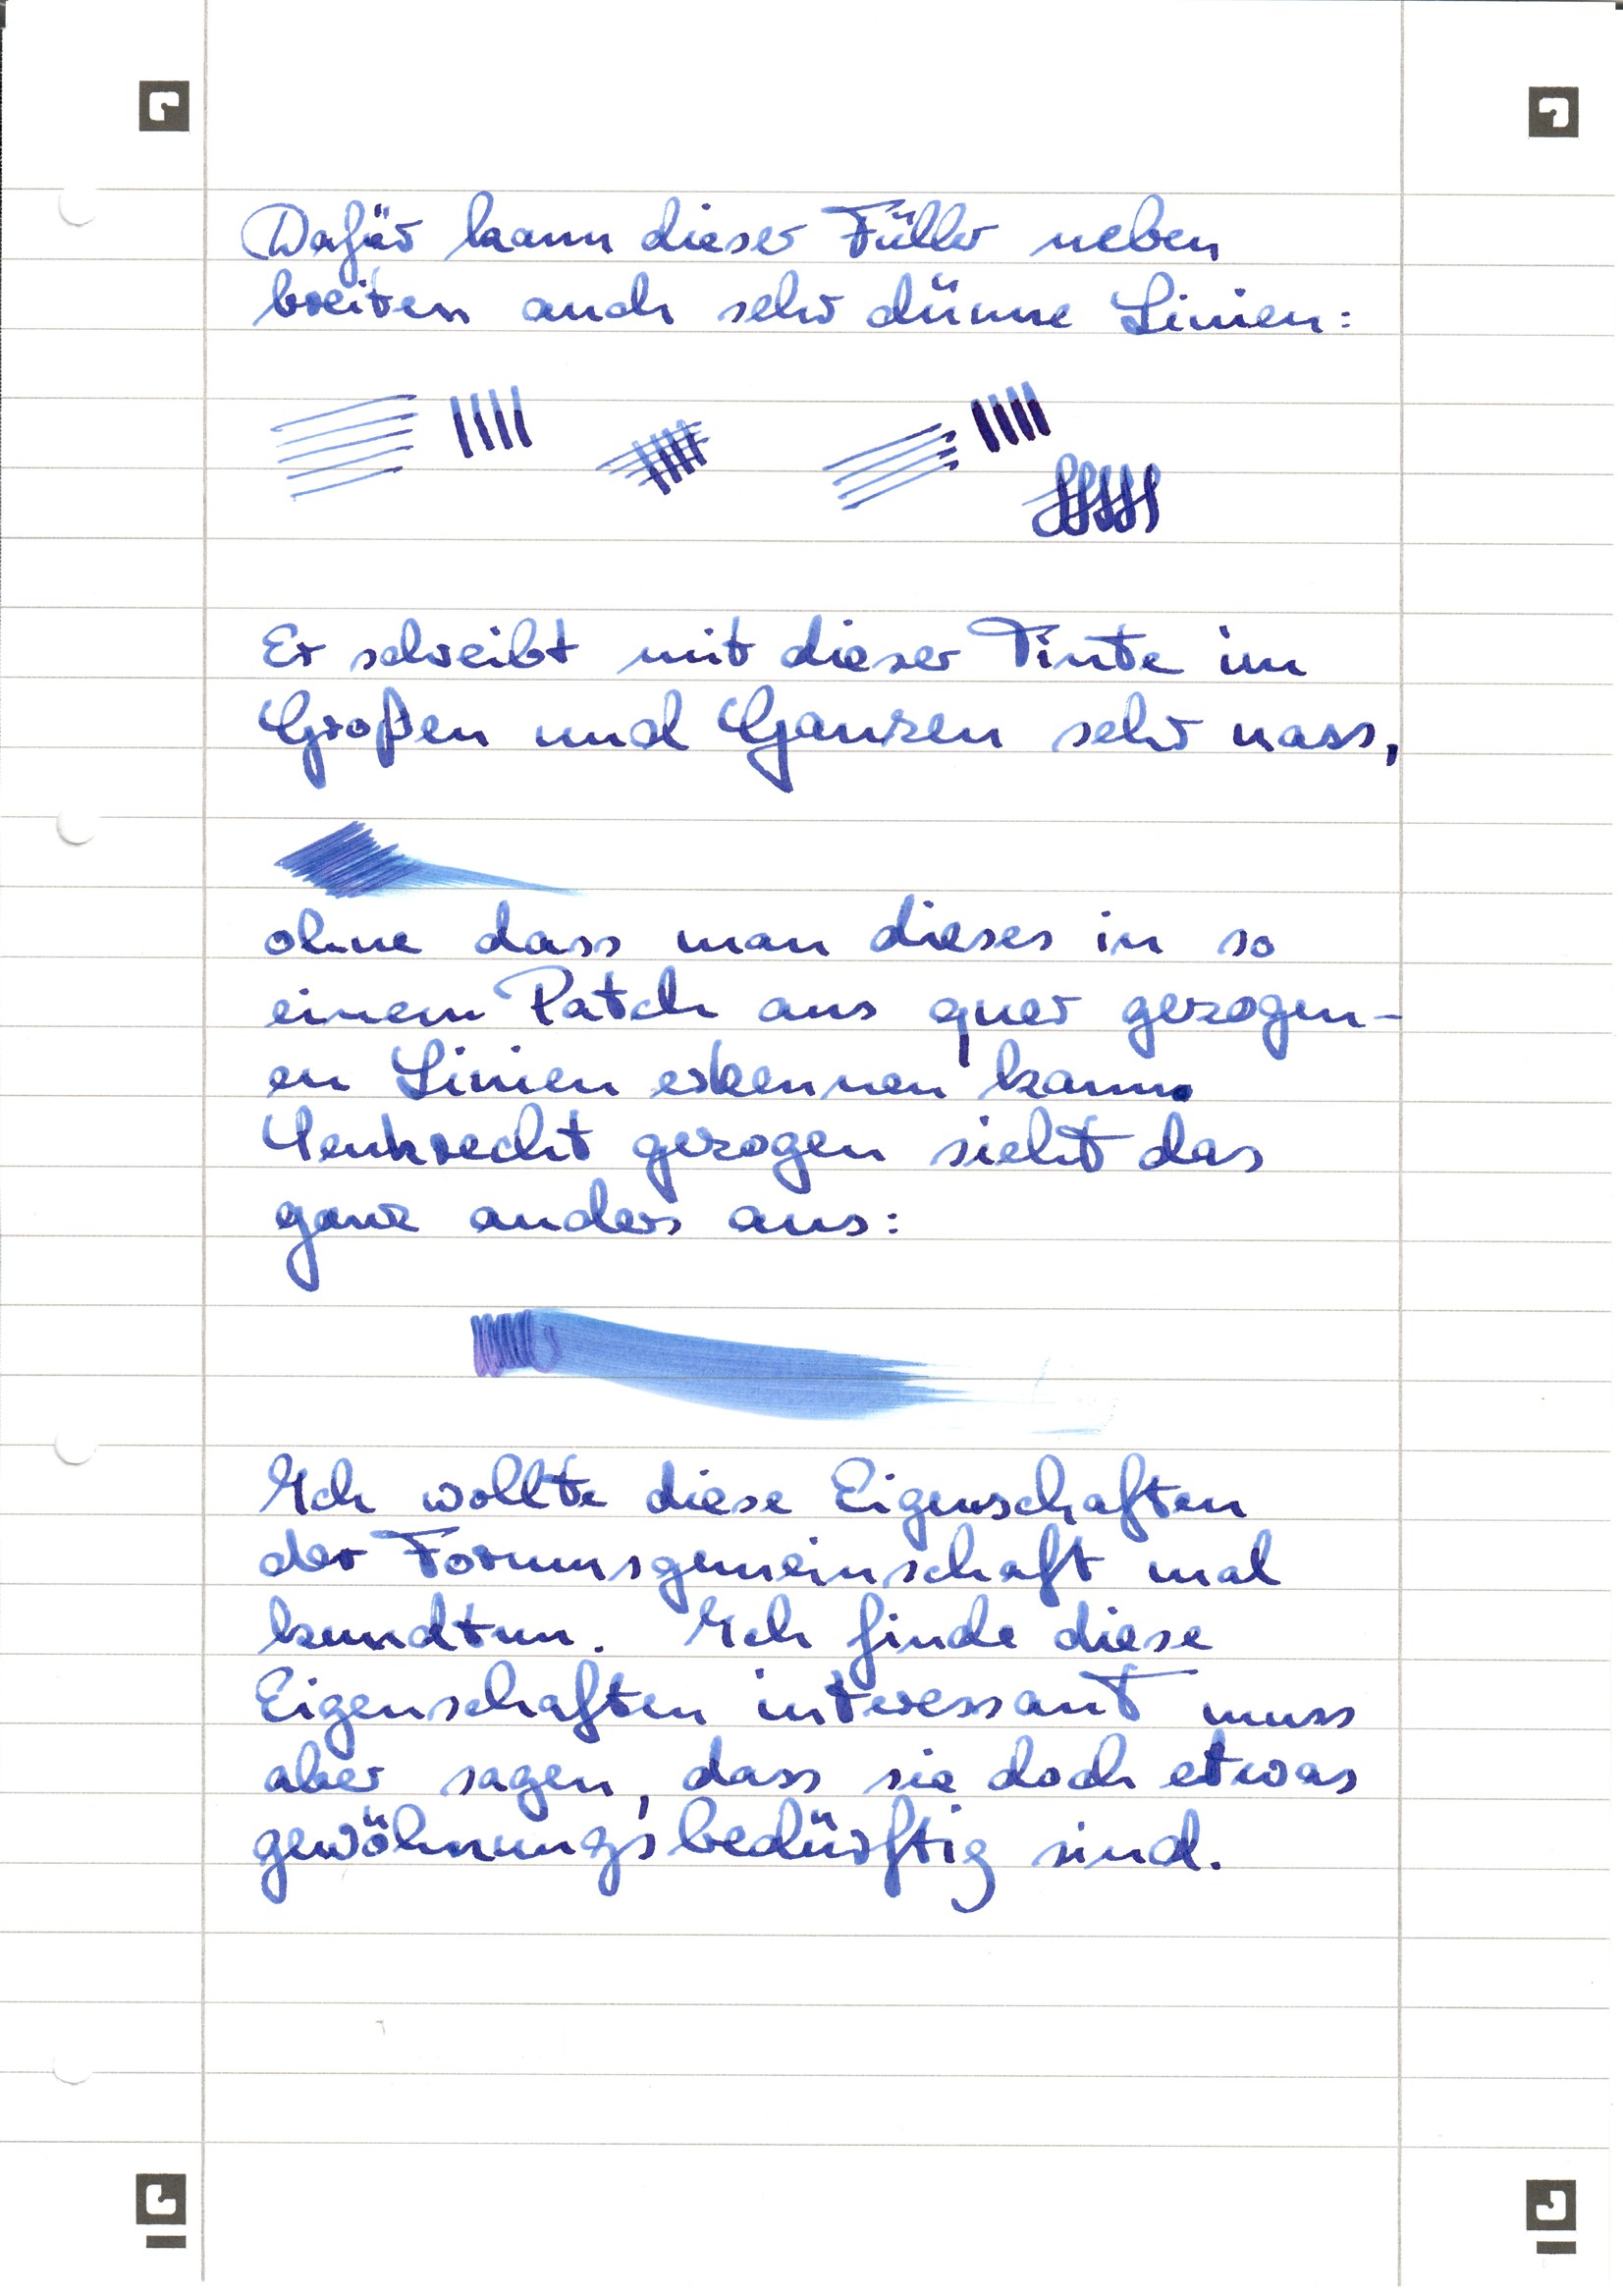 Dafür kann dieser Füller neben
breiten auch sehr dünne Linien:
Er schreibt mit dieser Tinte im
Großen und Ganzen sehr nass,
ohne dass man dieses in so
einem Patch aus quer gezogen-
en Linien erkennen kann.
Senkrecht gezogen sieht das
ganz anders aus:
Ich wollte diese Eigenschaften
der Forumsgemeinschaft mal
kundtun. Ich finde diese
Eigenschaften interessant muss
aber sagen, dass sie doch etwas
gewöhnungsbedürftig sind.